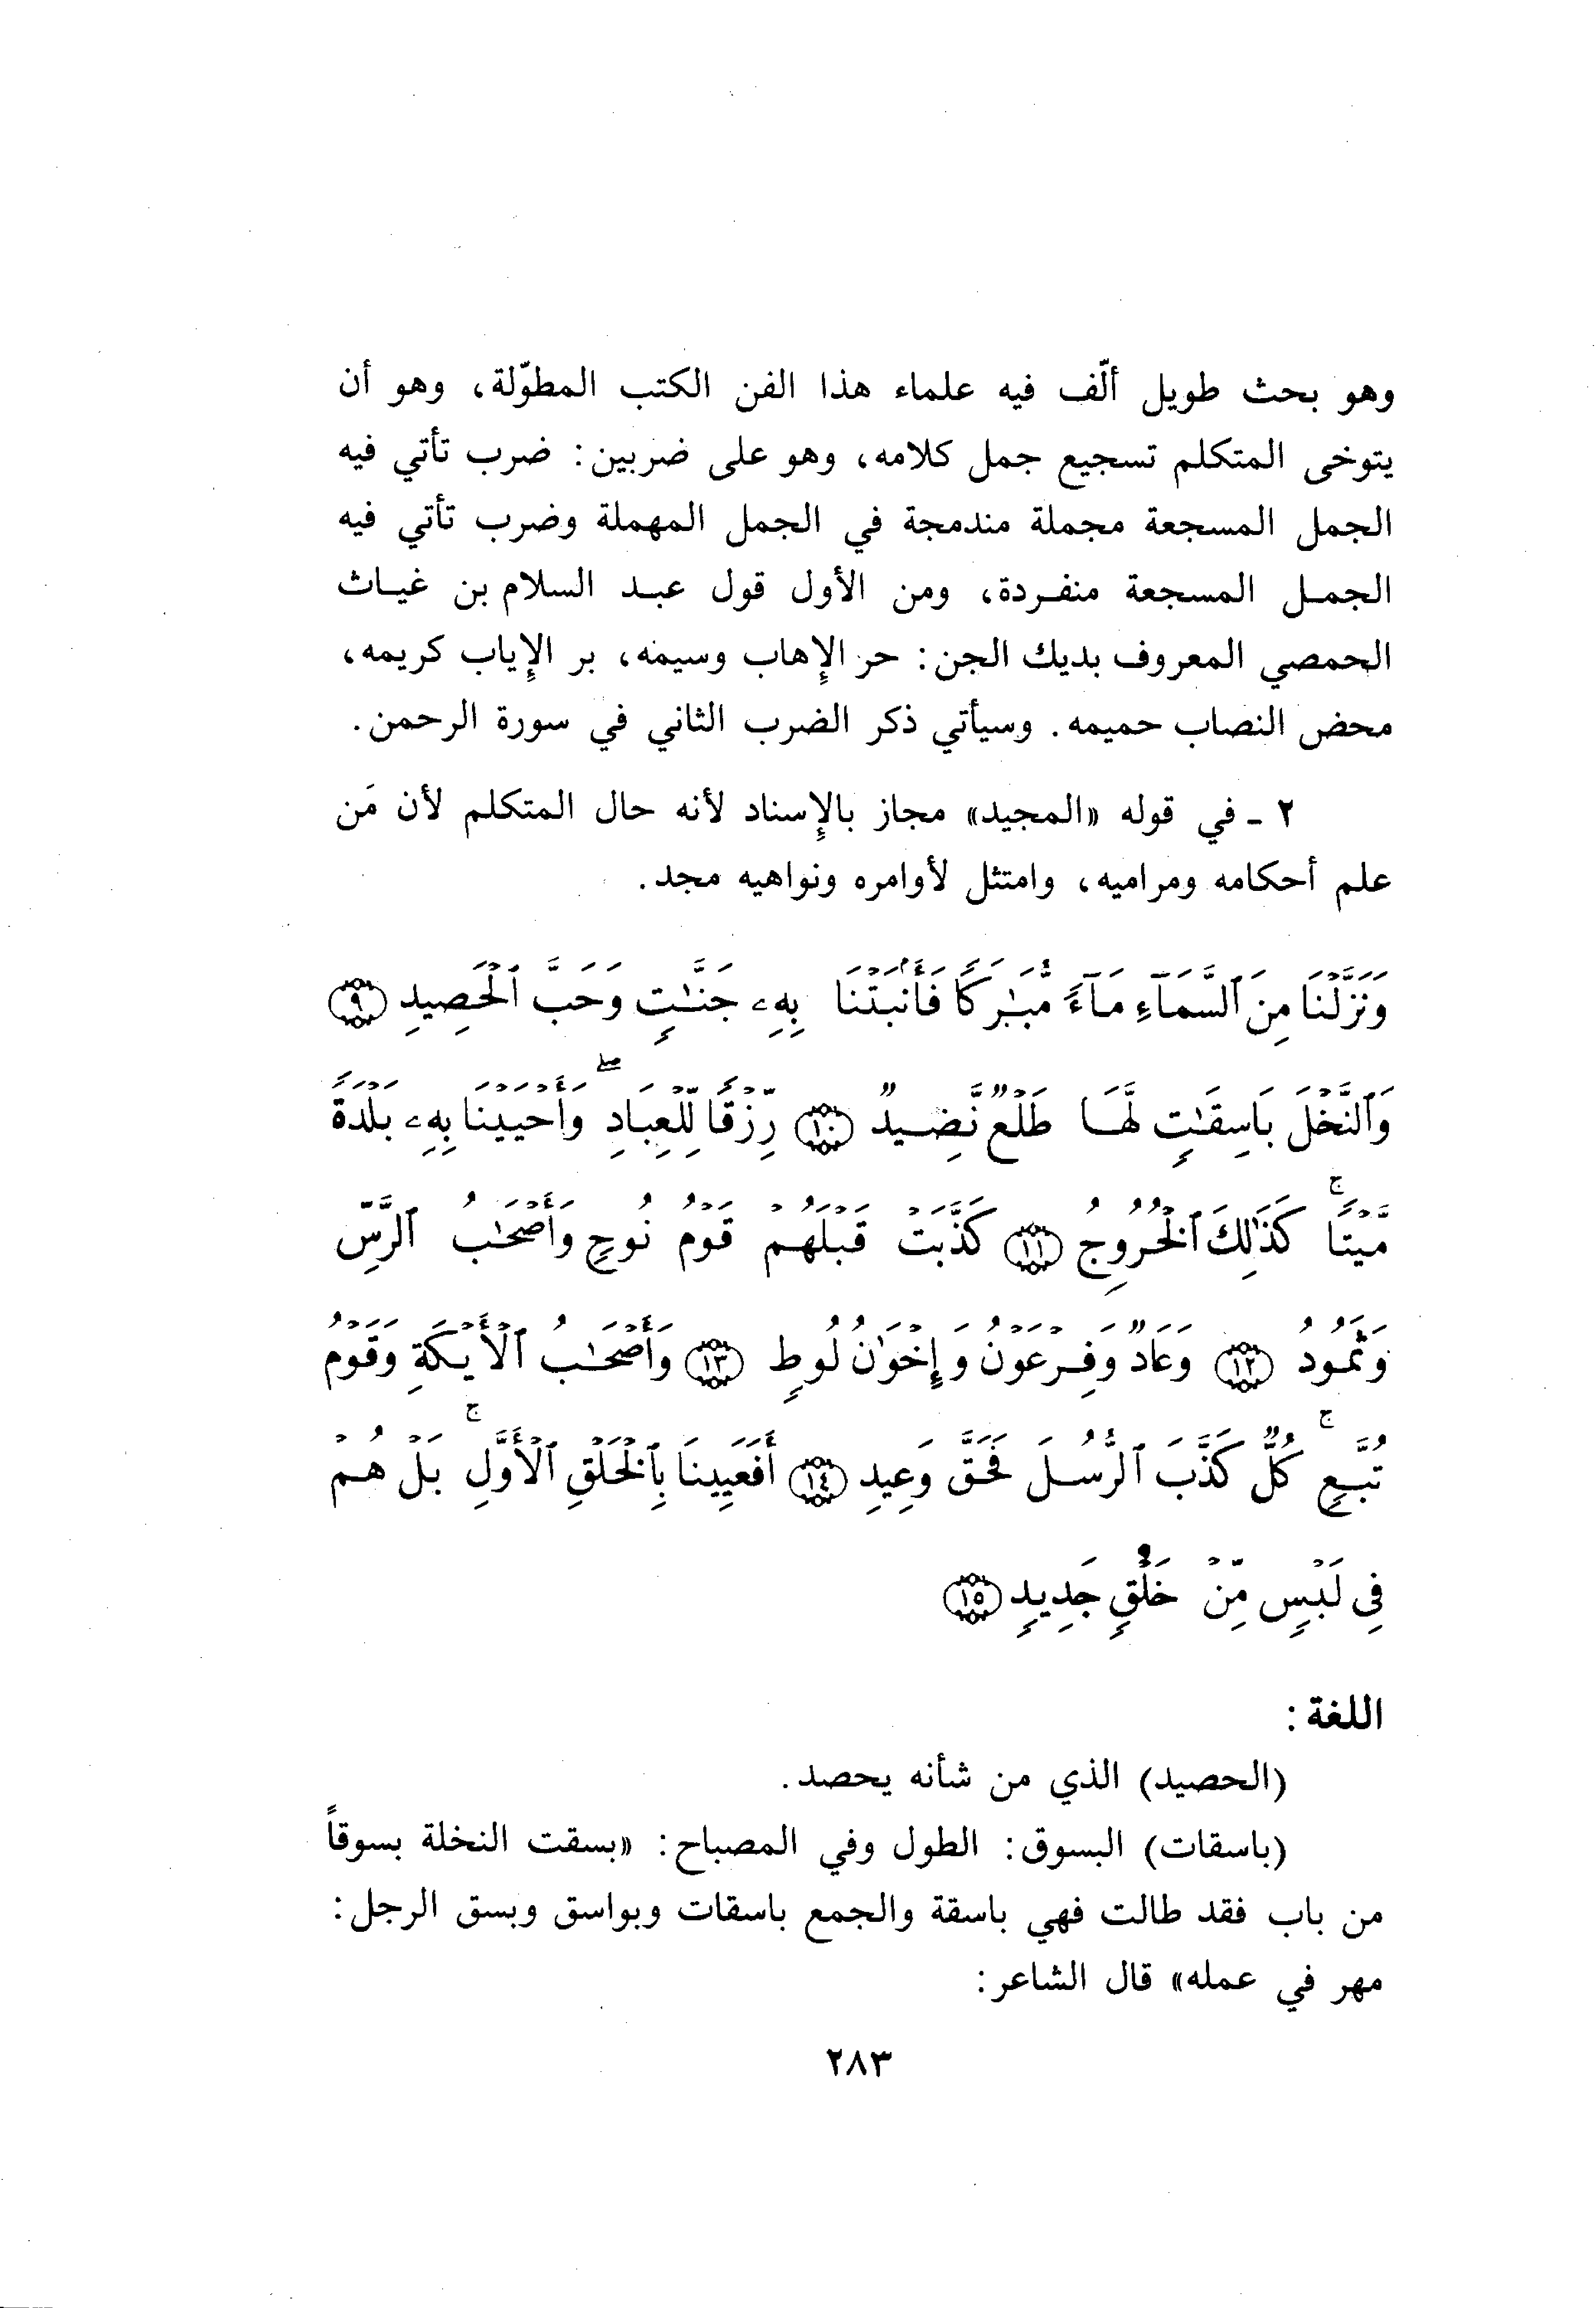 وهو بحث طويل ألّف فيه علماء هذا الفن الكتب المطوّلة، وهو أن
يتوخى المتكلم تسجيع جمل كلامه، وهو على ضربين: ضرب تأتي فيه
الجمل المسجعة مجملة مندمجة في الجمل المهملة وضرب تأتي فيه
الجمـل المسجعة منفـردة، ومن الأول قول عبـد السلام بن غيـاث
الحمصي المعروف بديك الجن: حر الإهاب وسيمه، بر الإياب كريمه،
محض النصاب حميمه. وسيأتي ذكر الضرب الثاني في سورة الرحمن.
٢ ـ في قوله «المجيد» مجاز بالإسناد لأنه حال المتكلم لأن مَن
علم أحكامه ومراميه، وامتثل لأوامره ونواهيه مجد.
وَنَزَّلْنَا مِنَ ٱلسَّمَآءِ مَآءً مُّبَٰرَكًا فَأَنۢبَتْنَا بِهِۦ جَنَّٰتٍ وَحَبَّ ٱلْحَصِيدِ ﴿٩﴾
وَٱلنَّخْلَ بَاسِقَٰتٍ لَّهَا طَلْعٌ نَّضِيدٌ ﴿١٠﴾ رِّزْقًا لِّلْعِبَادِ ۖ وَأَحْيَيْنَا بِهِۦ بَلْدَةً
مَّيْتًا ۚ كَذَٰلِكَ ٱلْخُرُوجُ ﴿١١﴾ كَذَّبَتْ قَبْلَهُمْ قَوْمُ نُوحٍ وَأَصْحَٰبُ ٱلرَّسِّ
وَثَمُودُ ﴿١٢﴾ وَعَادٌ وَفِرْعَوْنُ وَإِخْوَٰنُ لُوطٍ ﴿١٣﴾ وَأَصْحَٰبُ ٱلْأَيْكَةِ وَقَوْمُ
تُبَّعٍ ۚ كُلٌّ كَذَّبَ ٱلرُّسُلَ فَحَقَّ وَعِيدِ ﴿١٤﴾ أَفَعَيِينَا بِٱلْخَلْقِ ٱلْأَوَّلِ ۚ بَلْ هُمْ
فِى لَبْسٍ مِّنْ خَلْقٍ جَدِيدٍ ﴿١٥﴾
اللغة:
(الحصيد) الذي من شأنه يحصد.
(باسقات) البسوق: الطول وفي المصباح: «بسقت النخلة بسوقاً
من باب فقد طالت فهي باسقة والجمع باسقات وبواسق وبسق الرجل:
مهر في عمله» قال الشاعر:
٢٨٣